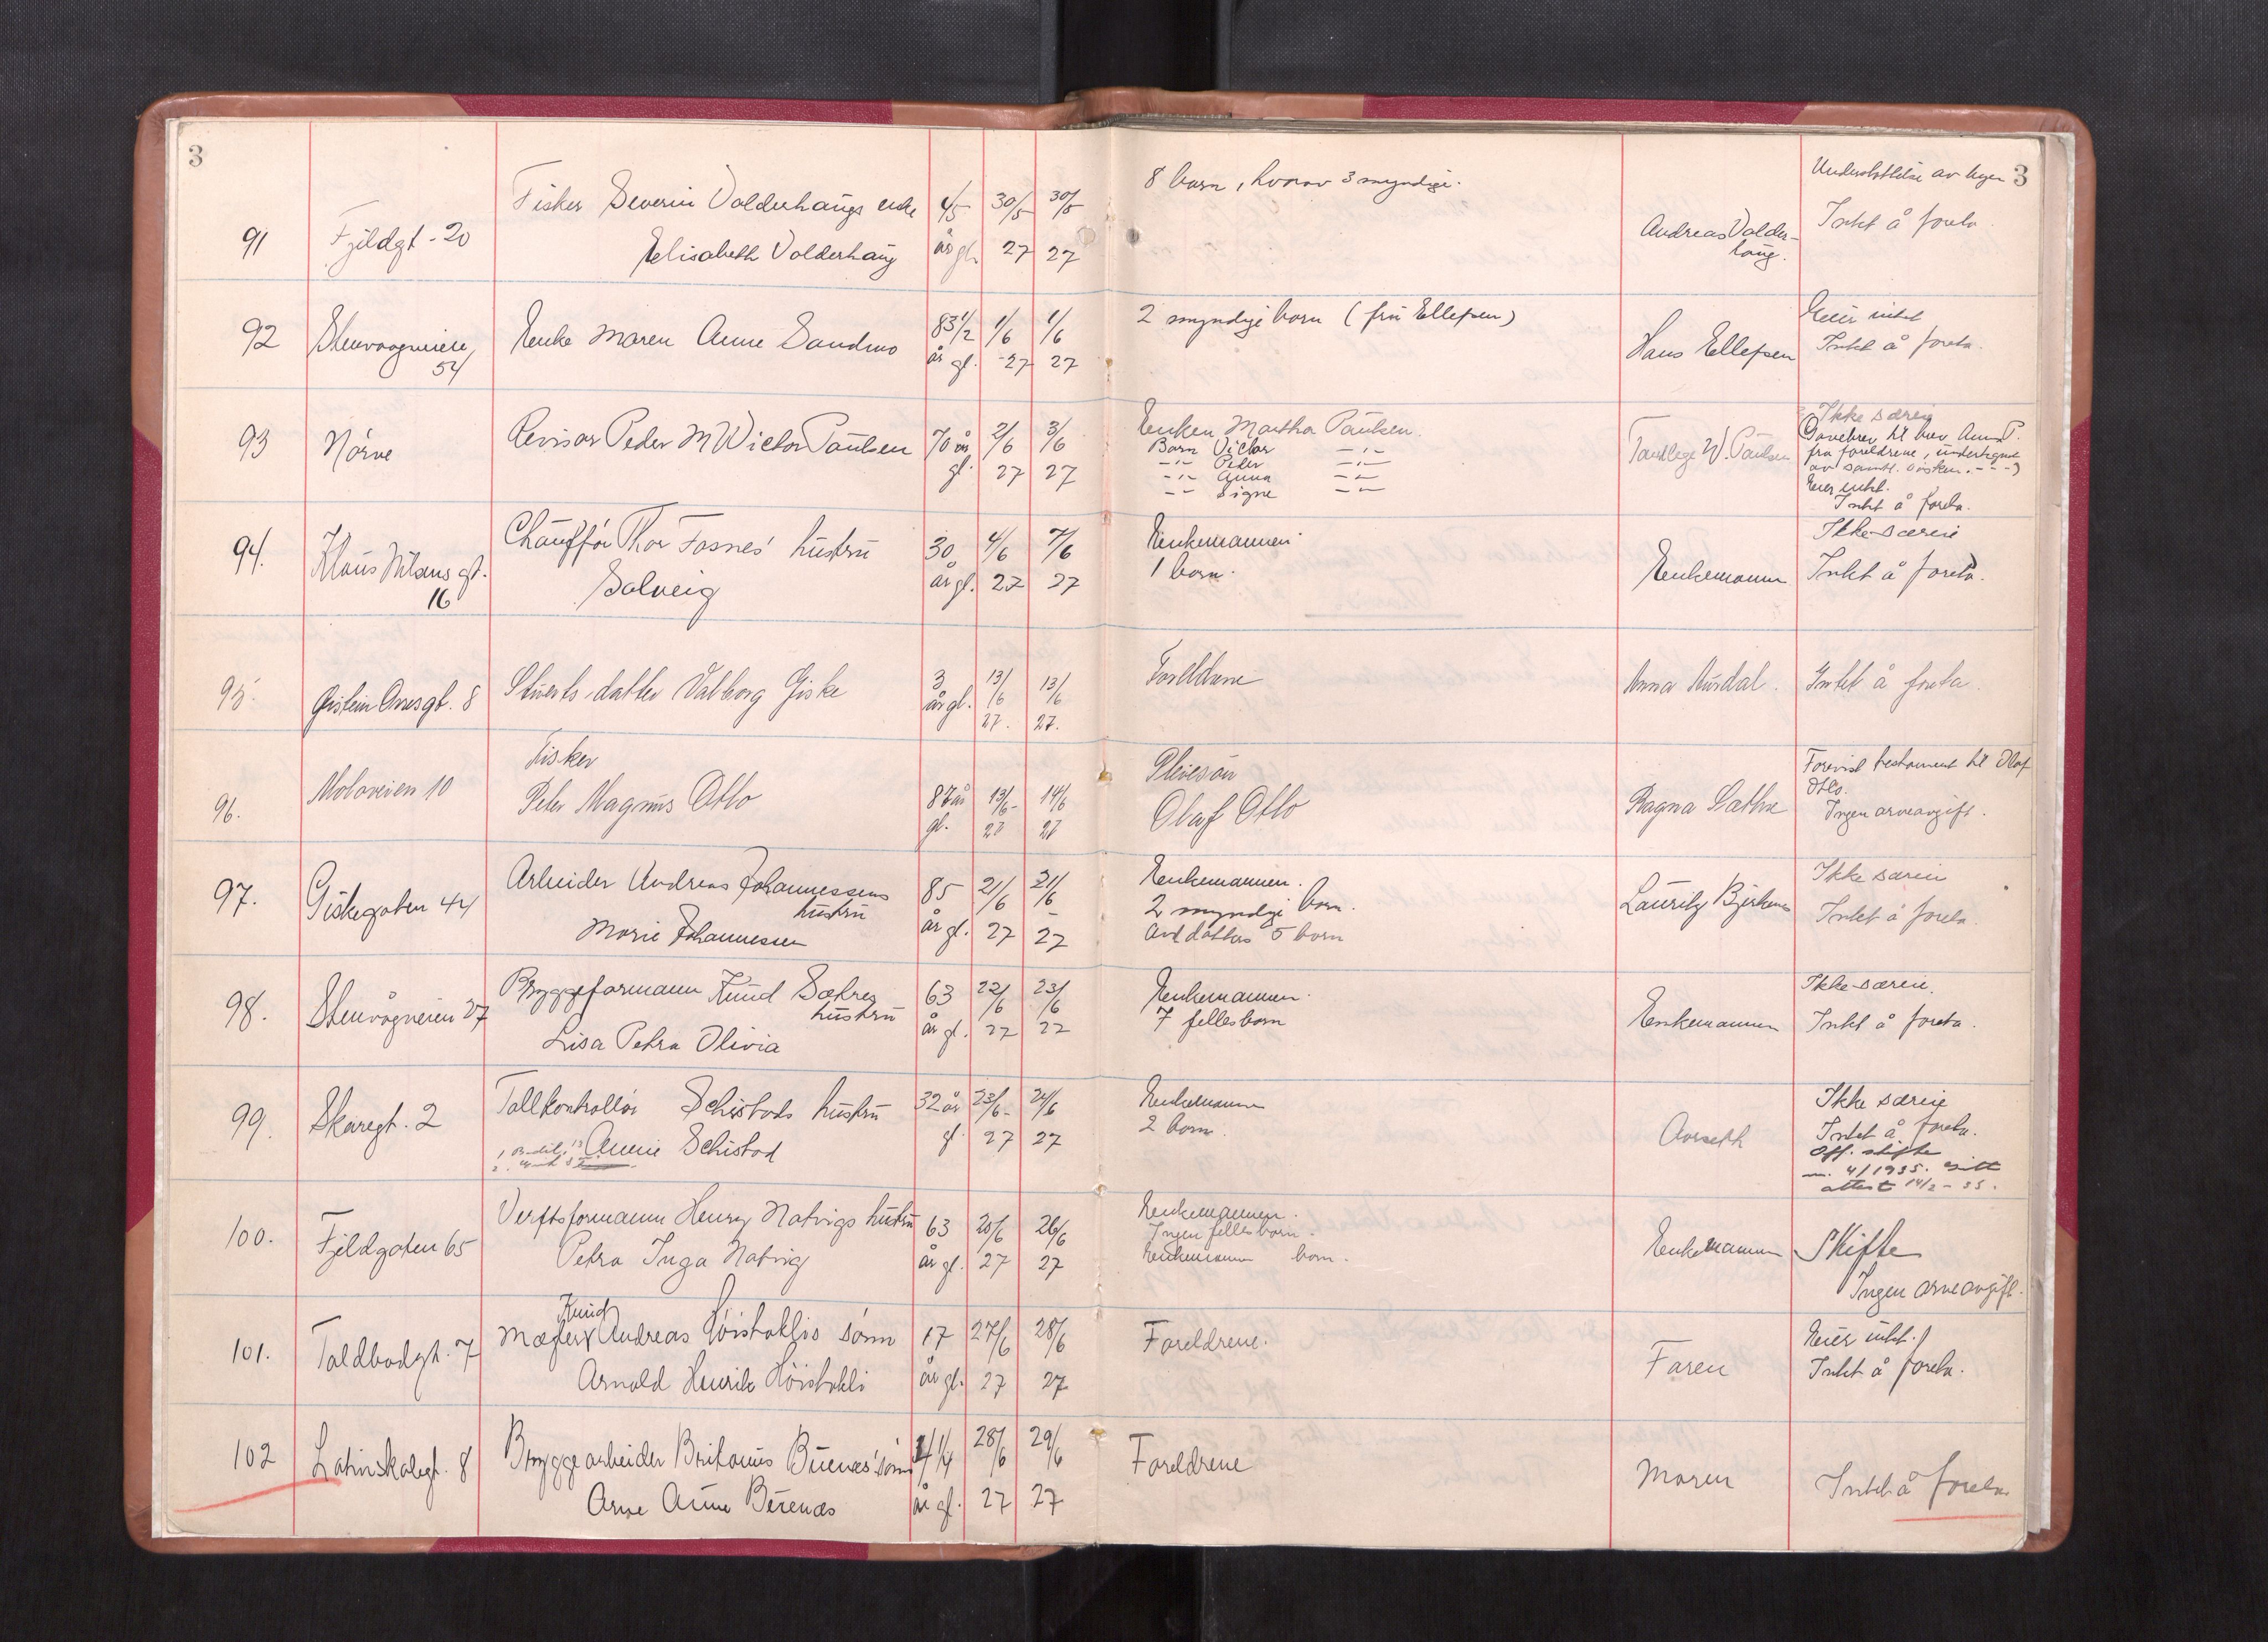 3
3
91
Fjeldgt. 20
Fisker Severin Valderhaugs enke
Elisabeth Valderhaug
år gl.
30/5 27
30/5 27
8 barn, hvorav 3 myndige.
Andreas Valder-
haug.
Understøttelse av byen
Intet å foreta
92
54
Enke Maren Anne Sandmo
83 1/2
år gl.
1/6 27
1/6 27
2 myndige barn (fru Ellefsen)
Hans Ellefsen
Eier intet
Intet å foreta.
93
Nörve
Revisor Peder M Wictor Paulsen
70 år
gl.
2/6 27
3/6 27
Enken Martha Paulsen.
Barn Victor -"-
-"- Peder -"-
-"- Anna -"-
-"- Signe -"-
Tandlege W. Paulsen
Ikke særeie
Gavebrev til barn Anna P.
fra foreldrene, undertegnet
av samtl. søsken.
Eier intet.
Intet å foreta.
94.
Klaus Nilsens gt.
16
Chauffør Thor Fosnes' hustru
Solveig
30
år gl.
4/6 27
7/6 27
Enkemannen
1 barn.
Enkemann
Ikke særeie
Intet å foreta.
95.
8
Stuerts datter Valborg Giske
3
år gl.
13/6 27.
13/6 27.
Foreldrene
Anna Aursdal.
Intet å foreta.
96.
Moloveien 10
Fisker
Peter Magnus Otto
87 år
gl.
13/6 27
14/6 27
Pleiesøn
Olaf Otto
Ragna Sæthre
Forevist testament til Olaf
Otto.
Ingen arveavgift.
97.
Giskegaten 44
Arbeider Andreas Johannessens
hustru
Marie Johannessen
85
år gl.
21/6 27
21/6 27
Enkemannen.
2 myndige barn.
Avd datters 5 barn
Lauritz Bjerknes
Ikke særeie
Intet å foreta.
98.
Stenvågveien 27
Bryggeformann Knud Sætres
hustru
Lisa Petra Olivia
63
år gl.
22/6 27
23/6 27
Enkemannen.
7 fellesbarn
Enkemannen
Ikke særeie.
Intet å foreta.
99.
Skaregt. 2
Tollkontrollør Schistads hustru
Annie Schistad
32 år
gl.
23/6 27
24/6 27
Enkemann
2 barn.
Aarseth
Ikke særeie
Intet å foreta.
Off. skifte
nr. 4/1935.
attest 14/2-35.
100.
Fjeldgaten 65
Verftsformann Henry Natvigs hustru
Petra Inga Natvig
63
år gl.
27
26/6 27
Enkemannen.
Ingen felles barn.
Enkemann barn.
Enkemann
Skifte
Ingen arveavgift.
101.
Toldbodgt. 7
Knud
Mægler Andreas Höistaklis sønn
Arnold Henrik Höistakli
17
år gl.
27/6 27
28/6 27
Foreldrene.
Faren
Eier intet.
Intet å foreta.
102
Latinskolegt. 8
Bryggearbeider
Arne
år gl.
28/6 27
29/6 27
Foreldrene
Moren
Intet å foreta